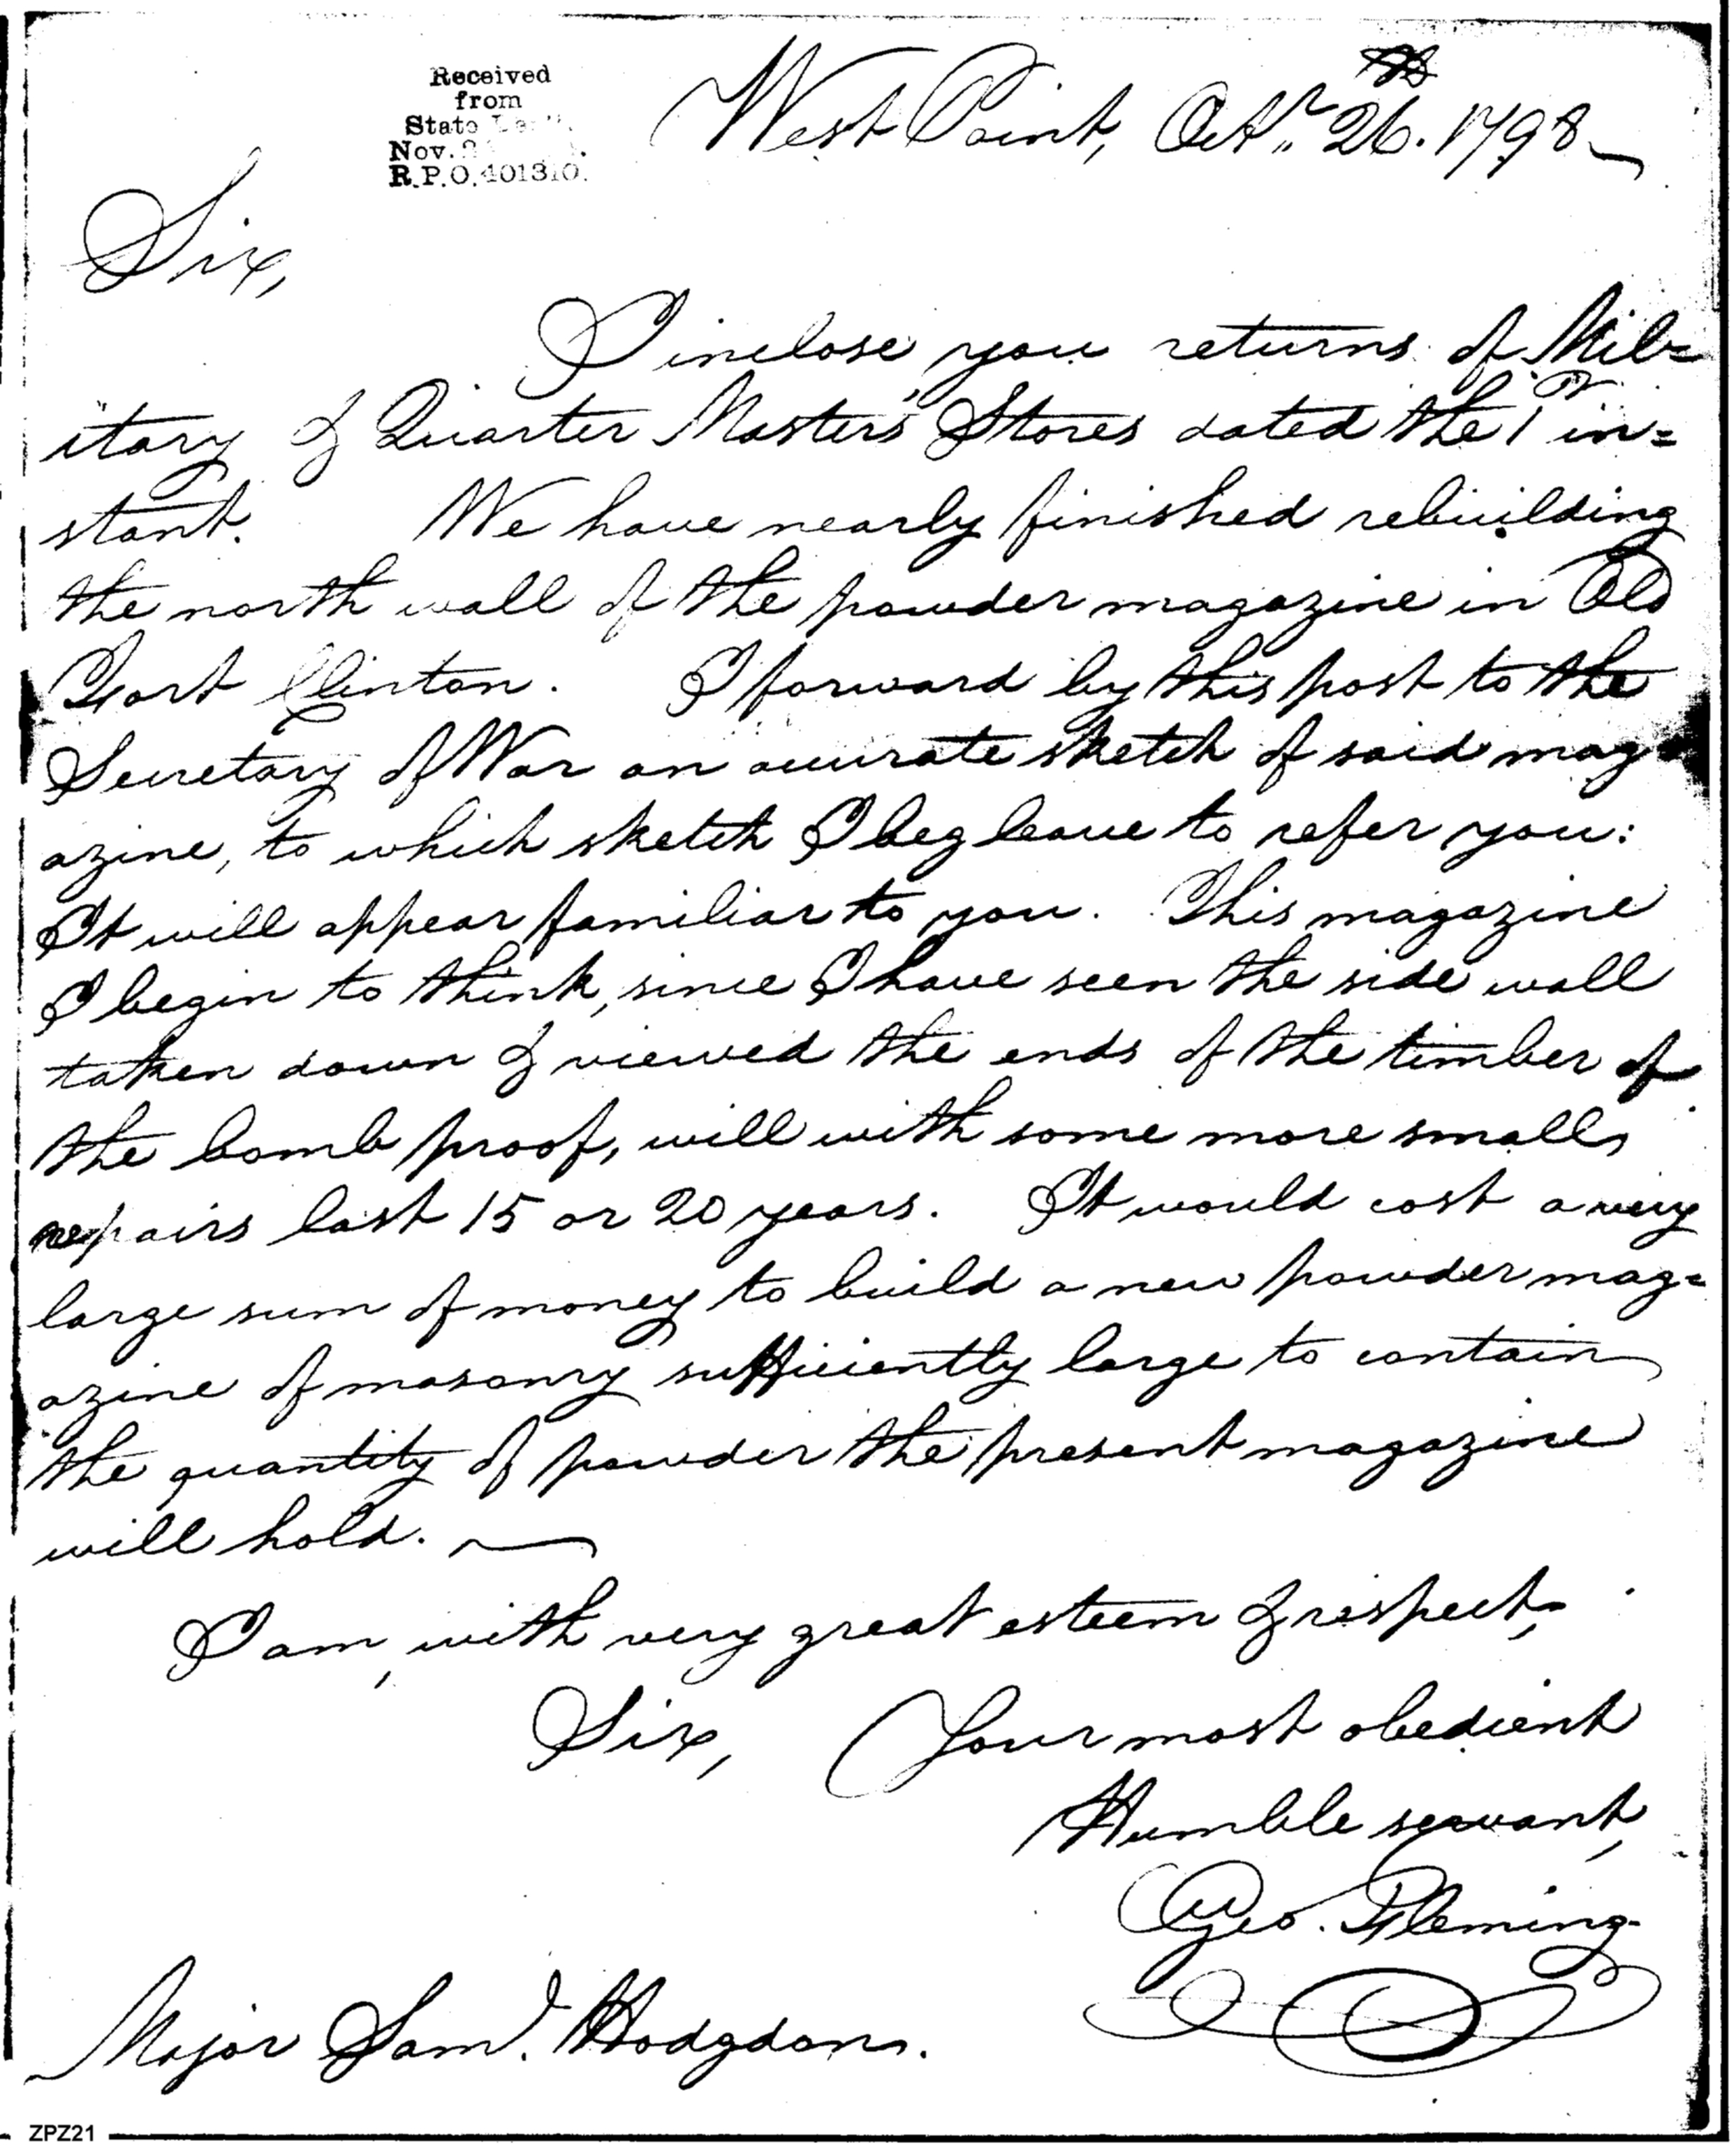 Received
from
State
Nov.
R.P.O. 401310.
West Point, Octr. 26. 1798
Sir,
I inclose you returns of Mil=
itary & Quarter Master's Stores dated the 1st in=
stant. We have nearly finished rebuilding
the north wall of the powder magazine in Old
Fort Clinton. I forward by this post to the
Secretary of War an accurate sketch of said mag=
azine, to which sketch I beg leave to refer you:
It will appear familiar to you. This magazine
I begin to think, since I have seen the side wall
taken down & viewed the ends of the timber of
the bomb proof, will with some more small
repairs last 15 or 20 years. It would cost a very
large sum of money to build a new powder mag=
azine of masonry sufficiently large to contain
the quantity of powder the present magazine
will hold.
I am, with very great esteem & respect,
Sir, Your most obedient
Humble servant,
Geo. Fleming
Major Saml. Hodgdon.
ZPZ21